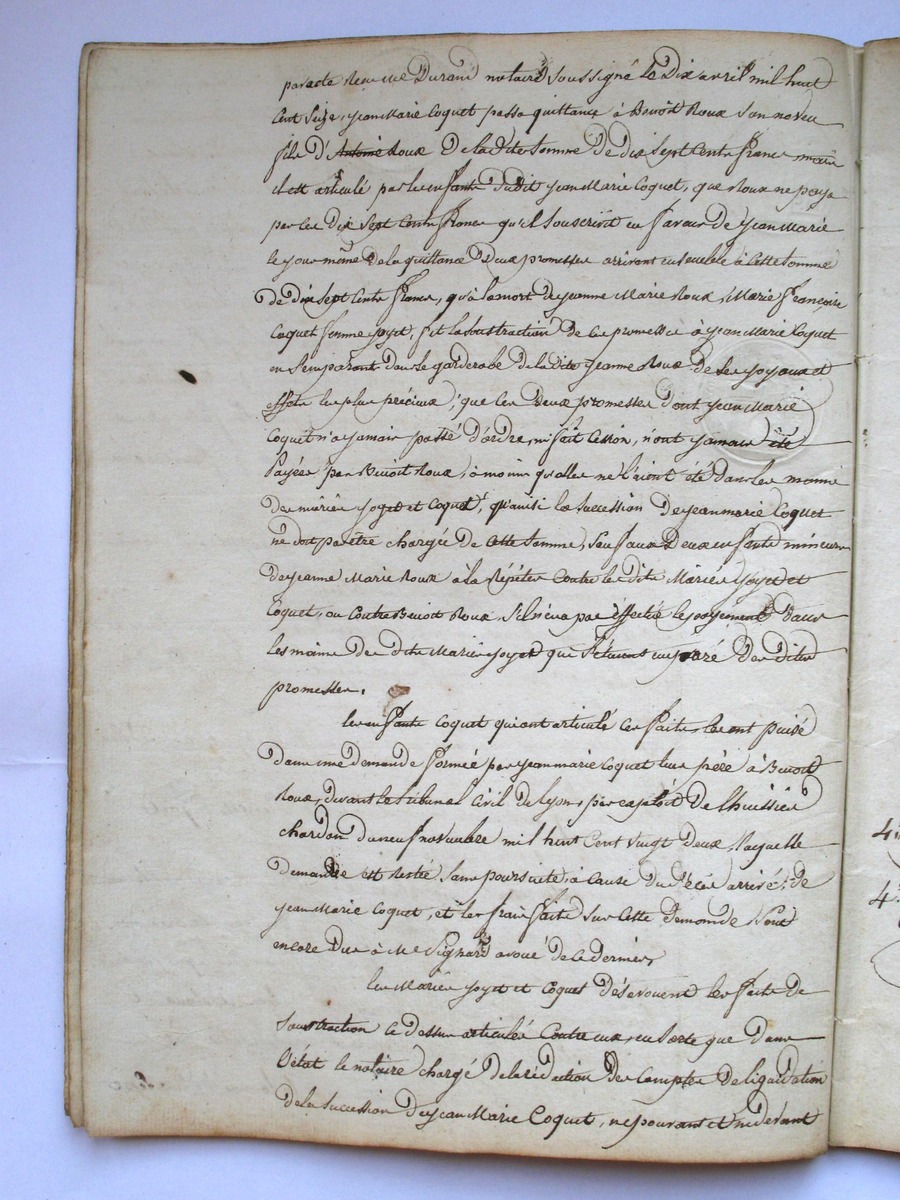 par acte reçu Me Durand notaire soussigné le Dix avril mil huit
Cent Seize, Jean Marie Coquet passa quittance à Benoit Roux Son neveu
fils d'Antoine Roux De la dite Somme De dix Sept Cents francs mais
il est articulé par les enfants Dudit Jean Marie Coquet, que Roux ne paya
pas les Dix Sept Cents francs qu'il Souscrivit en faveur de Jean Marie
le jour même De la quittance Deux promesses arrivant ensemble à Cette Somme
de dix Sept Cents francs, qu'à la mort de Jeanne Marie Roux, Marie Françoise
Coquet femme Joyet, fit la Soustraction De ces promesses à Jean Marie Coquet
en S'emparant Dans le garderobe De la Dite Jeanne Roux De Ses Joyaux et
effets les plus précieux; que les Deux promesses Dont Jean Marie
Coquet n'a jamais passé D'ordre, ni fait Cession, n'ont jamais été
Payées par Benoit Roux, à moins qu'elles ne l'aient été Dans les mains
Des mariés Joyet et Coquet, qu'ainsi la Succession De Jean marie Coquet
ne doit pas être chargée De Cette Somme, Sauf aux Deux enfants mineurs
De Jeanne Marie Roux à la Répéter Contre les Dits Mariés Joyet et
Coquet, ou Contre Benoit Roux S'il n'en a pas éffectué le payement Dans
les mains Des dits Mariés Joyet qui S'étaient emparé Des Dites
promesses.
les enfants Coquet qui ont articulé ces faits les ont puisé
Dans une demande formée par Jean marie Coquet leur père à Benoit
Roux, devant le tribunal Civil De Lyon, par exploit De l'huissier
chardon Du neuf novembre mil huit Cent vingt Deux, laquelle
Demande est restée Sans poursuite, à Cause Du Décès arrivé, de
Jean Marie Coquet, et les frais faits Sur Cette Demande Sont
encore Dus à Me Signard avoué De ce Dernier,
les Mariés Joyet et Coquet Désavouent les faits De
Soustraction Ci Dessus articulés Contre eux, en Sorte que Dans
l'état le notaire chargé De la rédaction Des Comptes De liquidation
De la Succession De Jean Marie Coquet, ne pouvant et ne devant